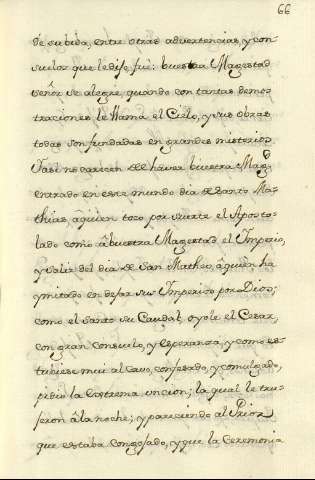 66
de su vida, entre otras advertencias, y con-
suelos que le dijo fue: buestra Magestad
señor se alegre, quando con tantas demos
traciones le llama el Cielo, y sus obras
todas son fundadas en grandes misterios.
Y assi no carecen de haver buestra Magd.
entrado en este mundo dia de Santo Ma-
thias aquien toco por suerte el Aposto-
lado como â buestra Magestad el Imperio,
y salir del dia de San Matheo, âquien ha
ymitado en dejar su Imperio por Dios;
como el Santo su Caudal; oyole el Cesar,
con gran consuelo, y Esperanza, y como es-
tubiese mui al cavo, confesado, y comulgado,
pidio la Extrema uncion; la qual le tru-
jeron â la noche; y pareciendo al Prior
que estaba congojado, y que la Ceremonia